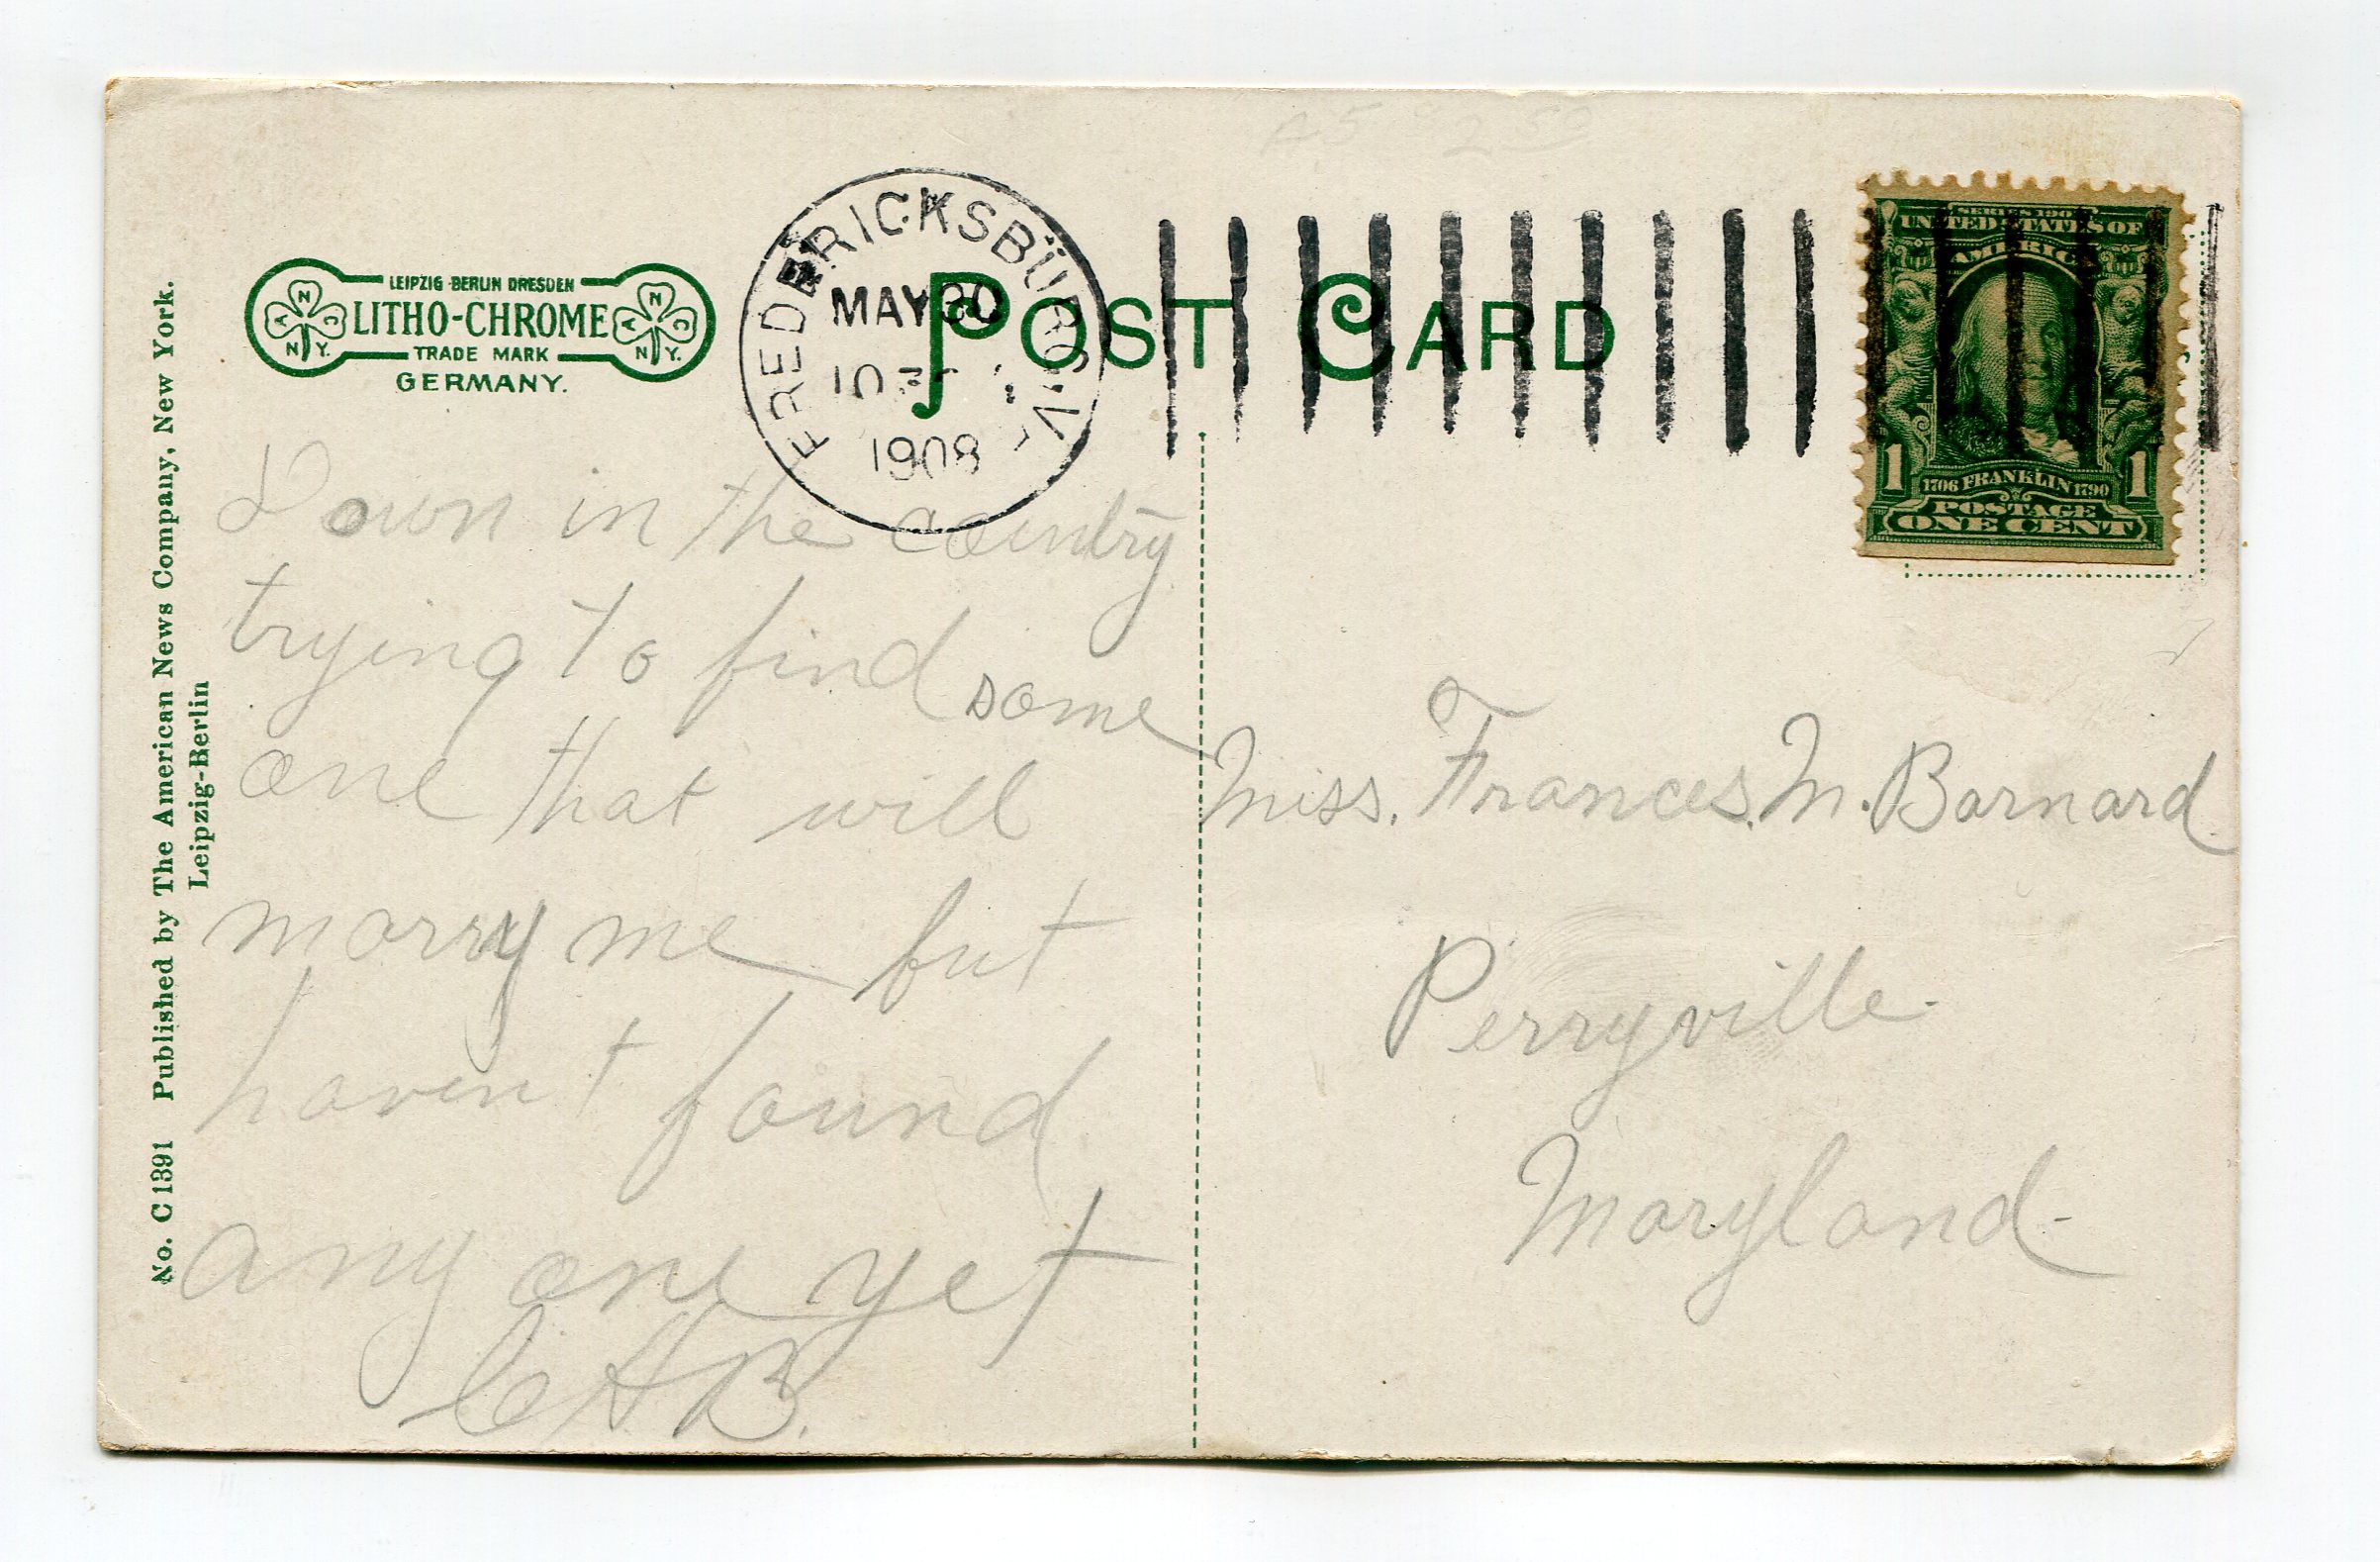 LEIPZIG BERLIN DRESDEN
LITHO-CHROME
TRADE MARK
GERMANY.
N
A C
N Y.
N
A C
N Y.
FREDERICKSBURG, VA.
MAY 30
1908
POST CARD
SERIES 1902
UNITED STATES OF
AMERICA
1 1
1706 FRANKLIN 1790
POSTAGE
ONE CENT
No. C 1391 Published by The American News Company, New York.
Leipzig-Berlin
Down in the country
trying to find some
one that will
marry me but
haven't found
any one yet
C H B.
Miss. Frances. M. Barnard
Perryville
Maryland